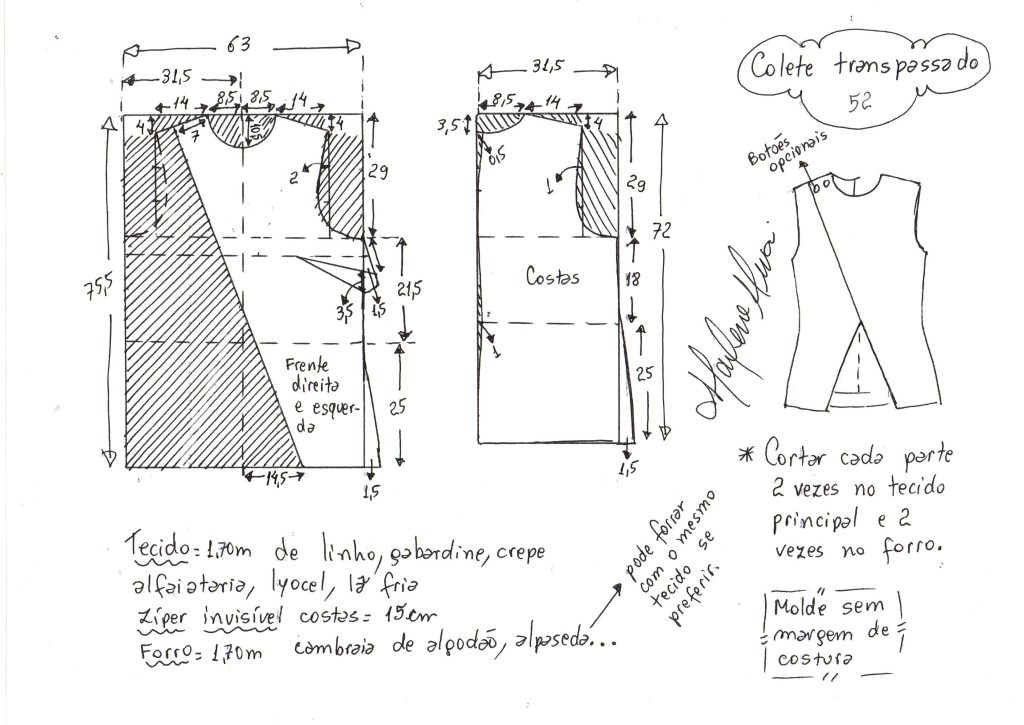 63
31,5
14
8,5
8,5
14
4
7
10,5
4
2
29
75,5
3,5
1,5
21,5
Frente
direita
e esquer-
da
25
14,5
1,5
31,5
8,5
14
3,5
0,5
4
1
29
72
Costas
18
1
25
1,5
Colete transpassado
52
Botões
opcionais
Marlene
* Cortar cada parte
2 vezes no tecido
principal e 2
vezes no forro.
Molde sem
margem de
costura
Tecido = 1,70m de linho, gabardine, crepe
alfaiataria, lyocel, lã fria
Zíper invisível costas = 15cm
Forro = 1,70m cambraia de algodão, alpaseda...
pode forrar
com o mesmo
tecido se
preferir.